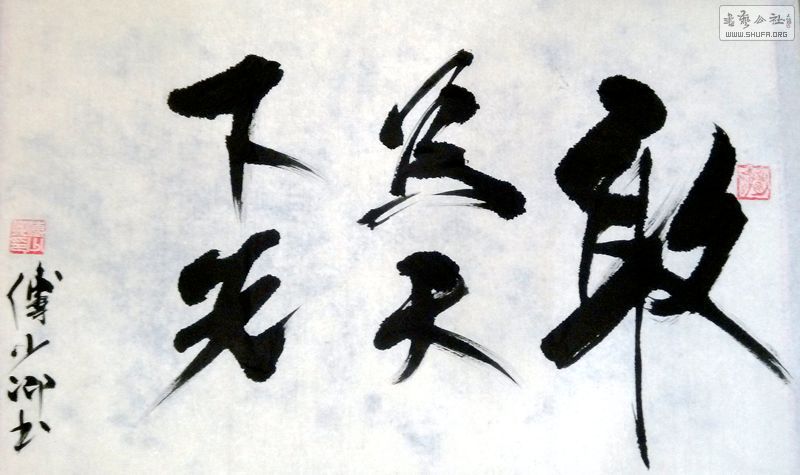 敢
为天
下先
傅小 书
书艺公社
WWW.SHUFA.ORG